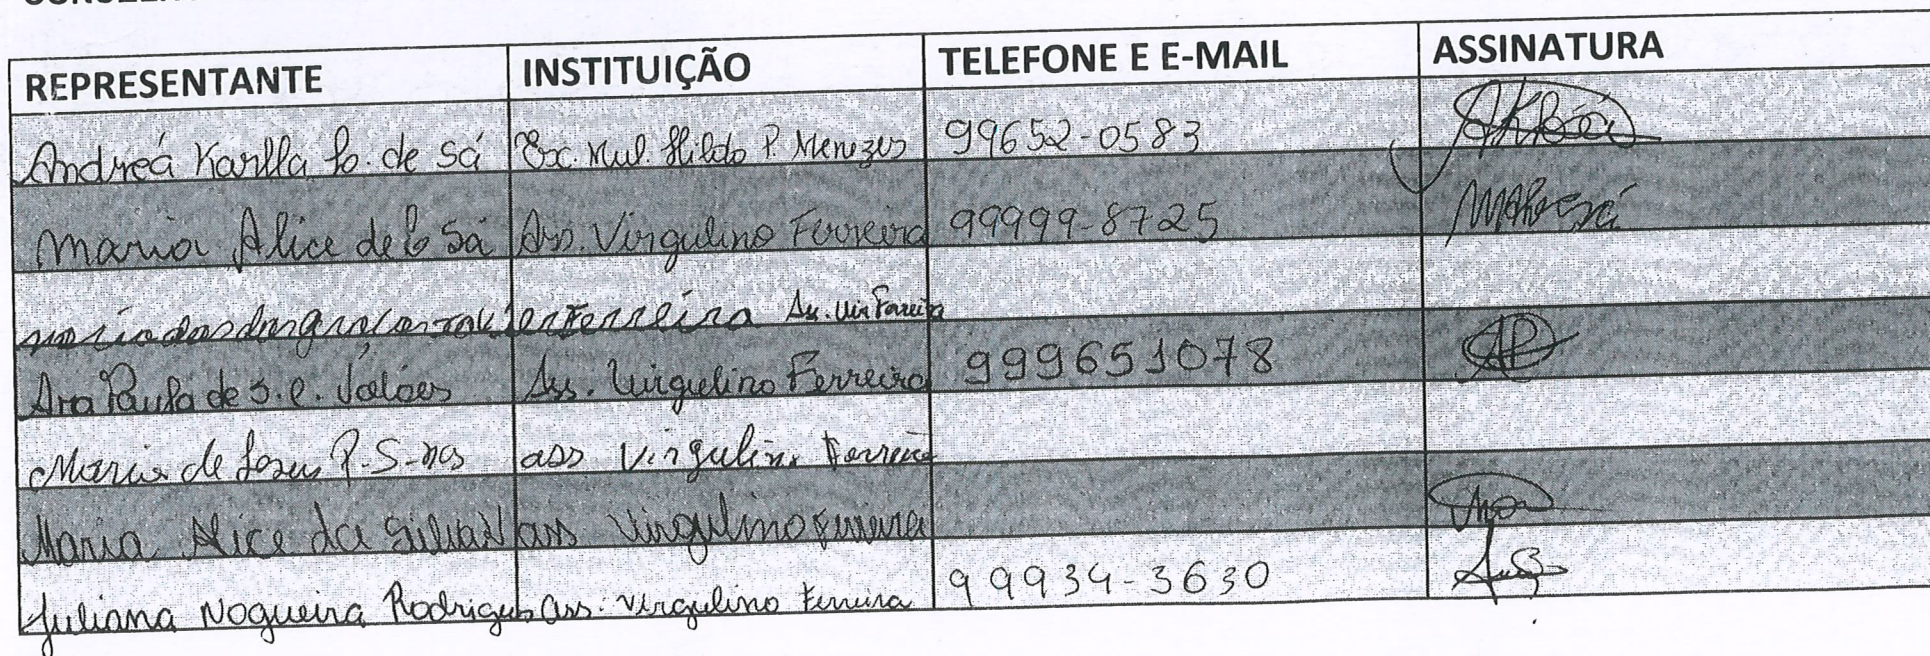 REPRESENTANTE INSTITUIÇÃO TELEFONE E E-MAIL ASSINATURA
Andreá Karlla de Sá Esc. Mul. Hildo P. Menezes 99652-0583
Maria Alice de Sá Ass. Virgulino Ferreira 99999-8725
Ferreira Ass. Vir Ferreira
Ana Paula de S. e. Ass. Virgulino Ferreira 999651078
Maria de P. S. ass Virgulino Ferreira
Maria Alice da Silva ass Virgulino Ferreira
Juliana Nogueira Rodrigues ass. Virgulino Ferreira 99934-3630